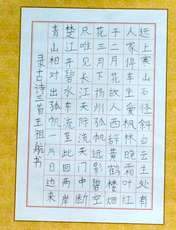 远上寒山石径斜白云生处有
人家停车坐爱枫林晚霜叶红
于二月花故人西辞黄鹤楼烟
花三月下扬州孤帆远影碧空
尽唯见长江天际流天门中断
楚江开碧水东流至此回两岸
青山相对出孤帆一片日边来
录古诗三首王祖航书